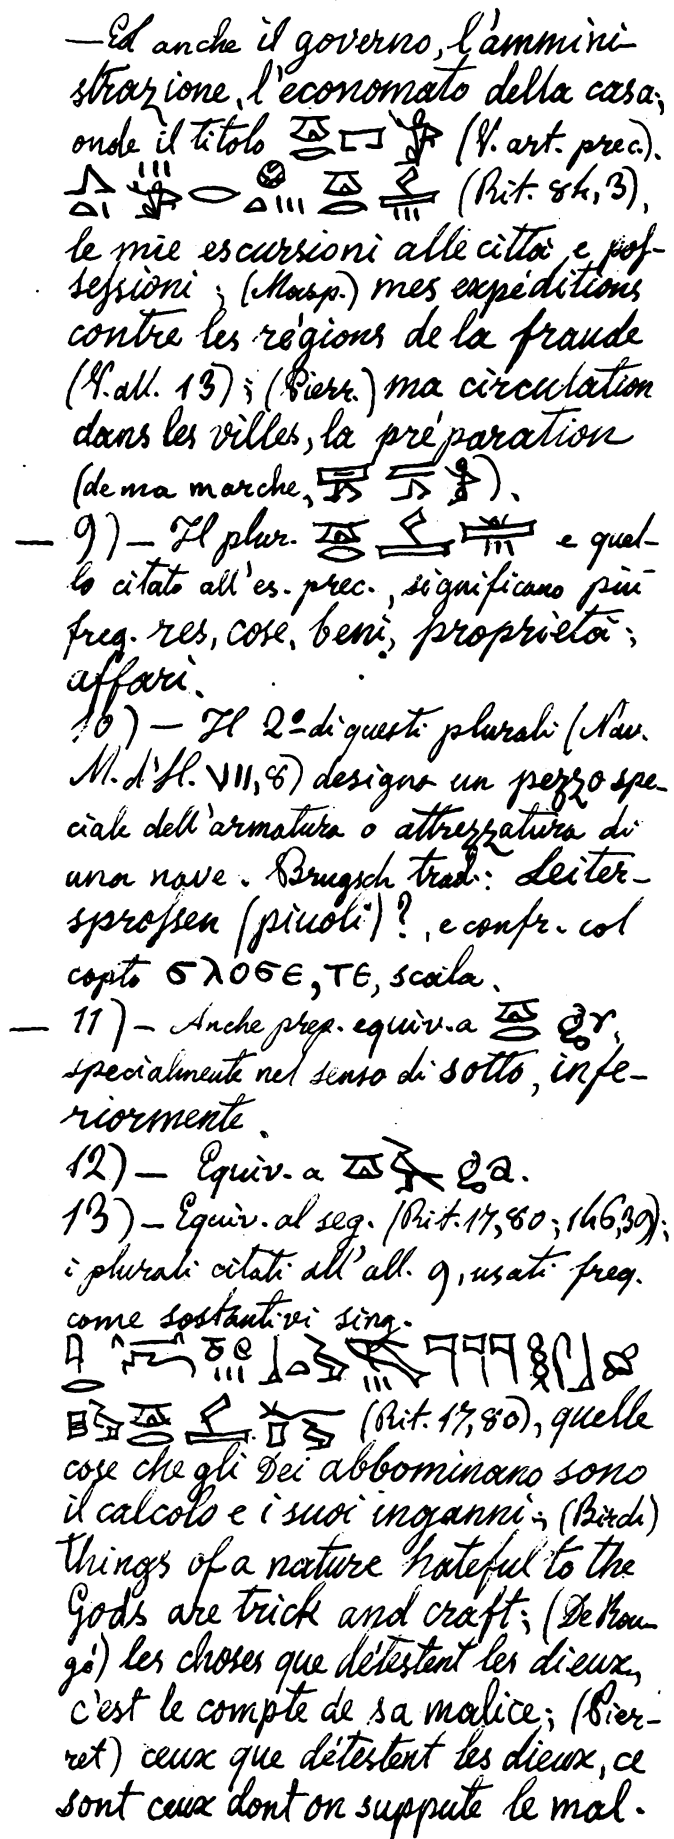 — Ed anche il governo, l'ammini-
strazione, l'economato della casa;
onde il titolo (V. art. prec.).
(Rit. 84, 3),
le mie escursioni alle città e pos-
sessioni; (Masp.) mes expéditions
contre les régions de la fraude
(V. all. 13); (Pierr.) ma circulation
dans les villes, la préparation
(de ma marche, ).
— 9) — Il plur. e quel-
lo citato all'es. prec., significano più
freq. res, cose, beni, proprietà;
affari.
10) — Il 2º di questi plurali (Nav.
M. d'H. VII, 8) designa un pezzo spe-
ciale dell'armatura o attrezzatura di
una nave. Brugsch trad.: Leiter-
sprossen (piuoli)?, e confr. col
copto ϭλοϭε, ΤΕ, scala.
— 11) — Anche prep. equiv. a gr,
specialmente nel senso di sotto, infe-
riormente.
12) — Equiv. a ga.
13) — Equiv. al seg. (Rit. 17, 80; 146, 39);
i plurali citati all'all. 9, usati freq.
come sostantivi sing.
(Rit. 17, 80), quelle
cose che gli Dei abbominano sono
il calcolo e i suoi inganni; (Birch)
things of a nature hateful to the
Gods are trick and craft; (De Rou-
gé) les choses que détestent les dieux,
c'est le compte de sa malice; (Pier-
ret) ceux que détestent les dieux, ce
sont ceux dont on suppute le mal.